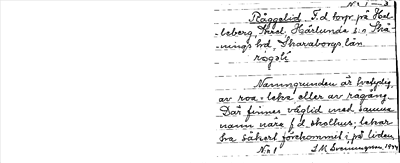 Nr 1 - 3
Råggelid F.d. torp på Hol-
leberg, Nred Härlunda s:n Skå-
nings hd, Skaraborgs län
rogəli
Namngrunden är tvetydig,
av roa = leka eller av rågång.
Där finnes väglid med samma
namn nära f.d. skolhus; lekar
bra säkert förekommit i på liden.
Nr 1 S.M. Svenungsson 1934